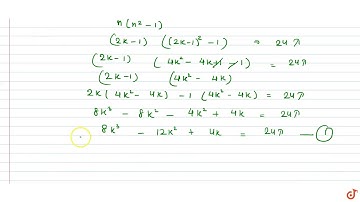 n(n² - 1)
(2k-1) ((2k-1)² - 1) = 24λ
(2k-1) (4k² - 4k + 1 - 1) = 24λ
(2k-1) (4k² - 4k)
2k(4k² - 4k) - 1(4k² - 4k) = 24λ
8k³ - 8k² - 4k² + 4k = 24λ
8k³ - 12k² + 4k = 24λ — ①